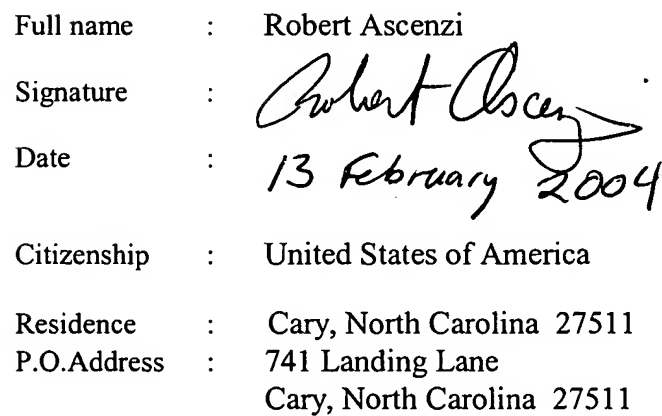 Full name : Robert Ascenzi
Signature : Robert Ascenzi
Date : 13 February 2004
Citizenship : United States of America
Residence : Cary, North Carolina 27511
P.O.Address : 741 Landing Lane
Cary, North Carolina 27511